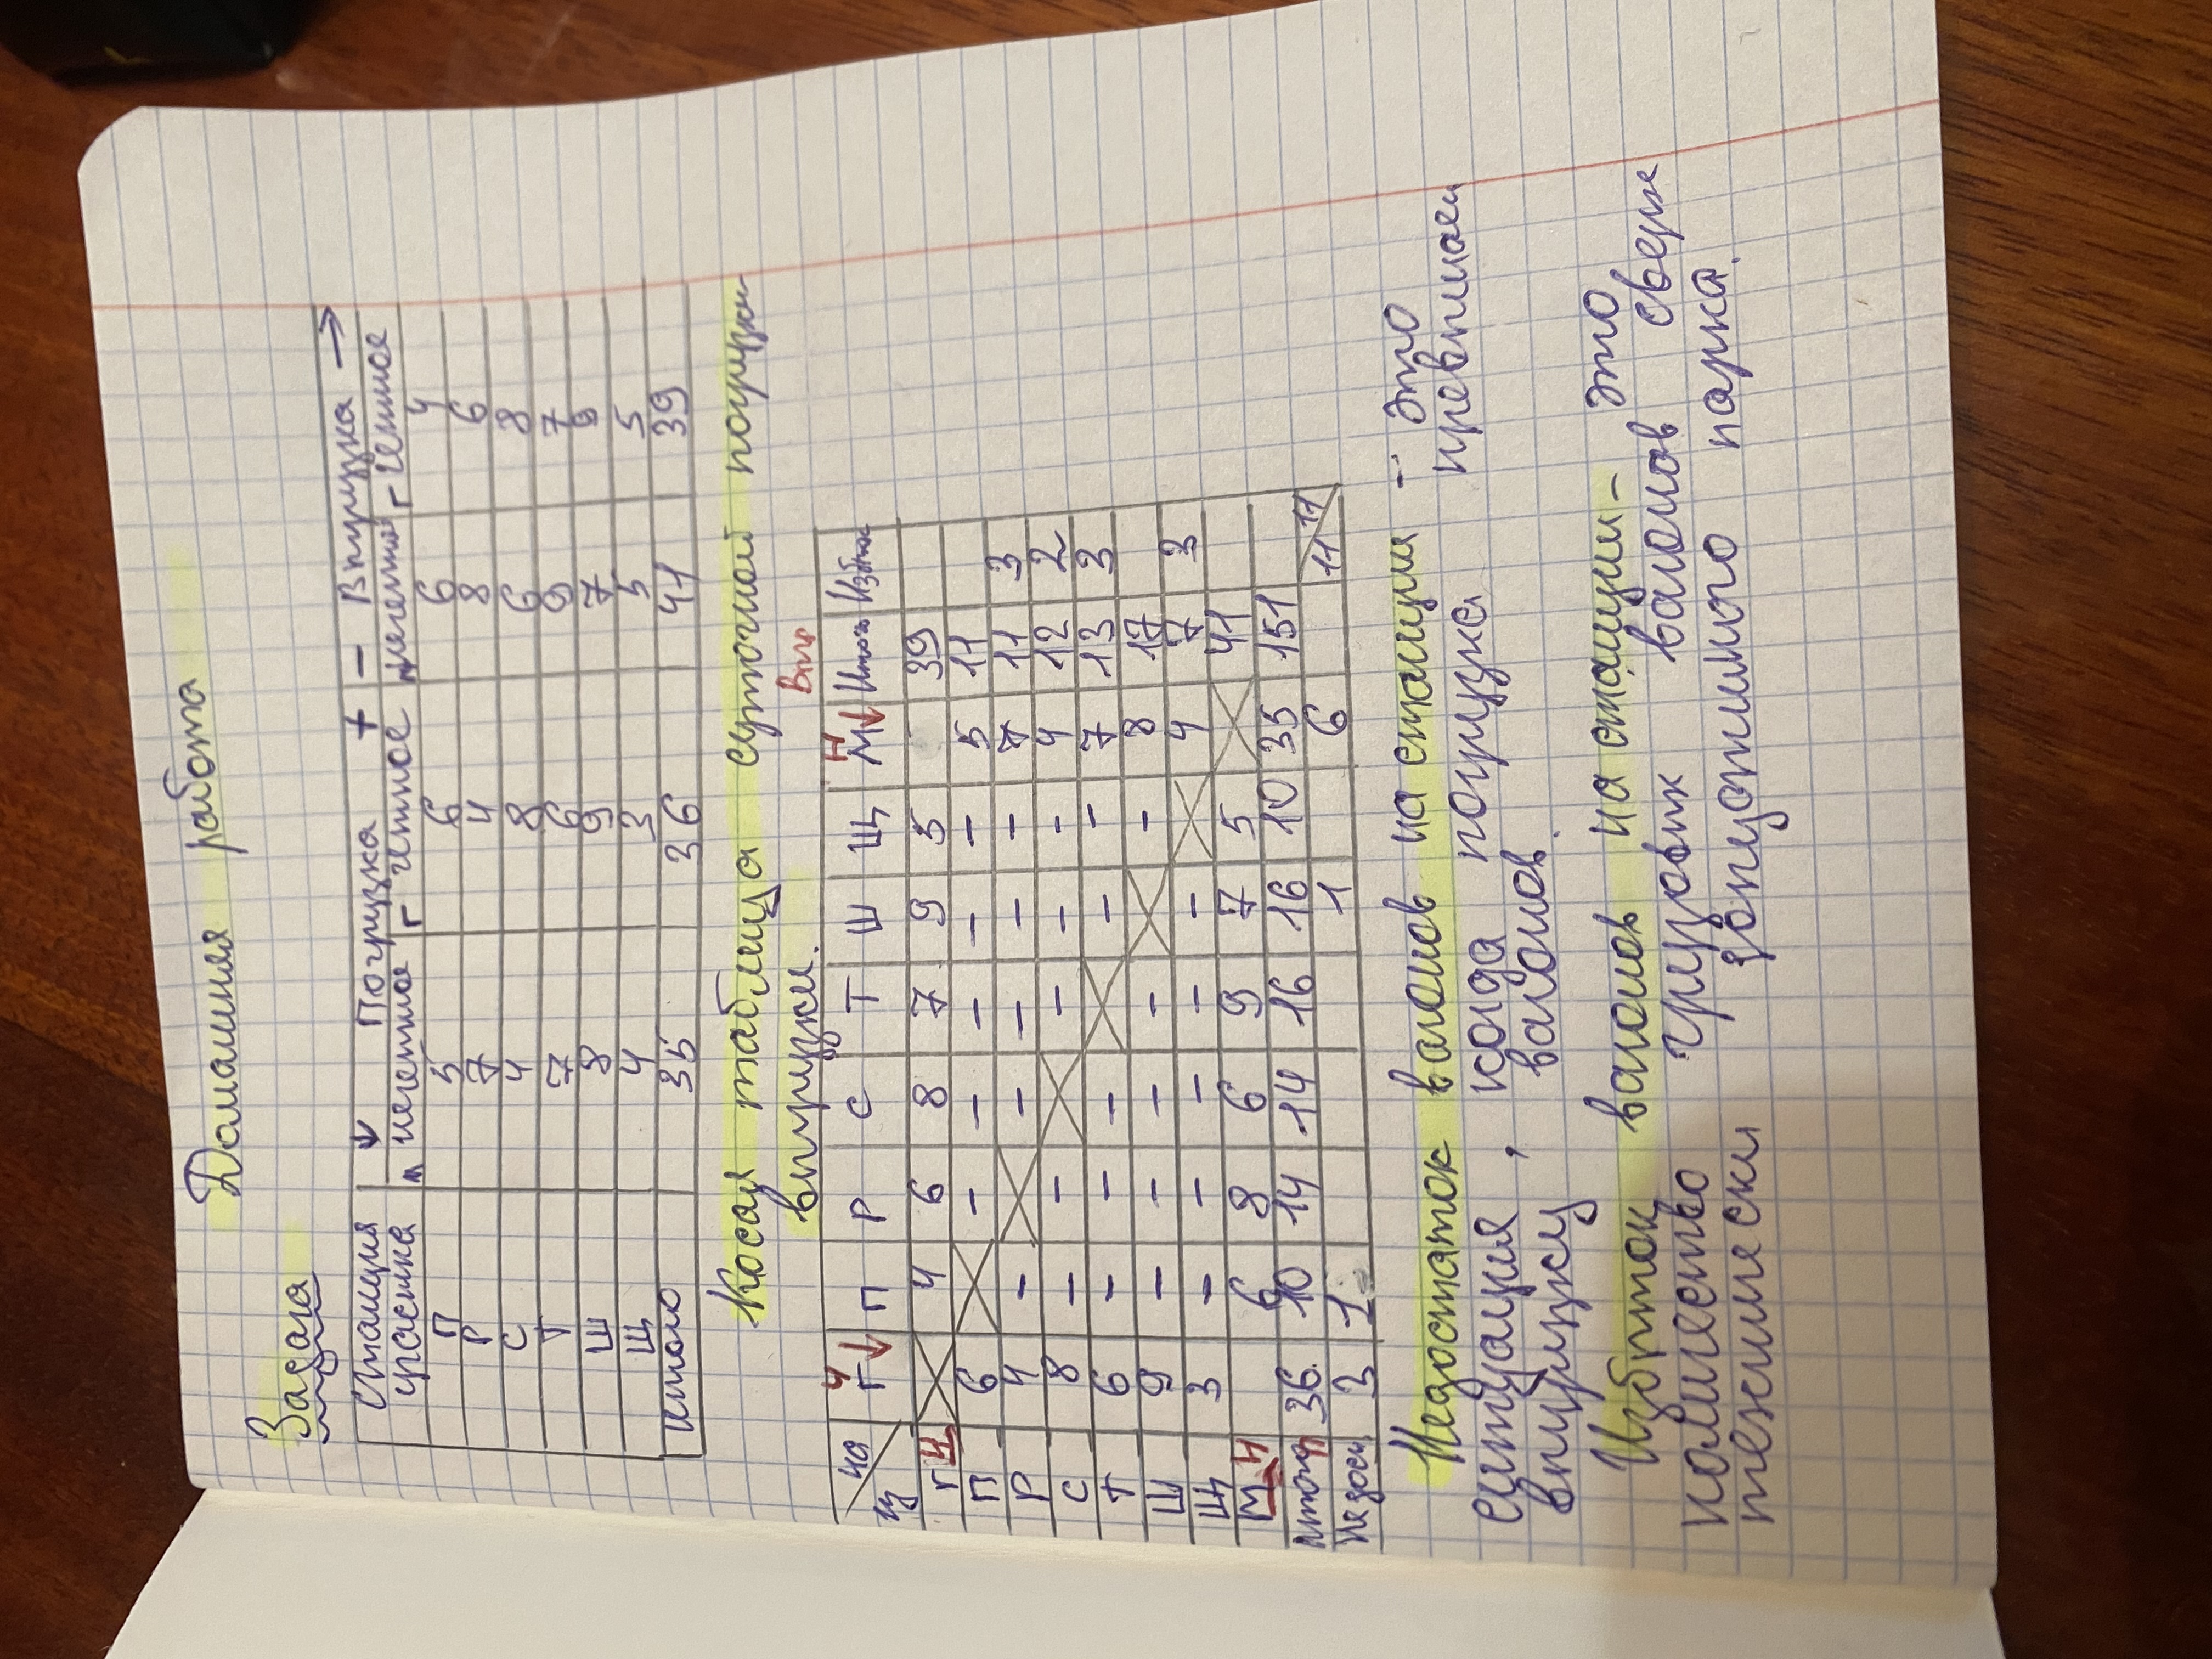 Домашняя работа
Задача
Станция участка Погрузка + — Выгрузка →
м нечетное г четное м нечетное г четное
П 5 6 6 4
Р 7 4 8 6
С 4 8 6 8
Т 7 6 9 7
Ш 8 9 7 9
Щ 4 3 5 5
итого 35 36 41 39
Косая таблица суточной погрузки
выгрузки.
Выг
из на Г Ч П Р С Т Ш Щ М Н Итог Избыток
Г Ч 4 6 8 7 9 5 39
П 6 - - - - - 5 11
Р 4 - - - - - 7 11 3
С 8 - - - - - 4 12 2
Т 6 - - - - - 7 13 3
Ш 9 - - - - - 8 17
Щ 3 - - - - - 4 7 3
М Н 6 8 6 9 7 5 41
итого 36 10 14 14 16 16 10 35 151
Недост. 3 1 1 6 11 11
Недостаток вагонов на станции - это
ситуация, когда погрузка превышает
выгрузку вагонов.
Избыток вагонов на станции - это
количество грузовых вагонов сверх
технически допустимого парка.